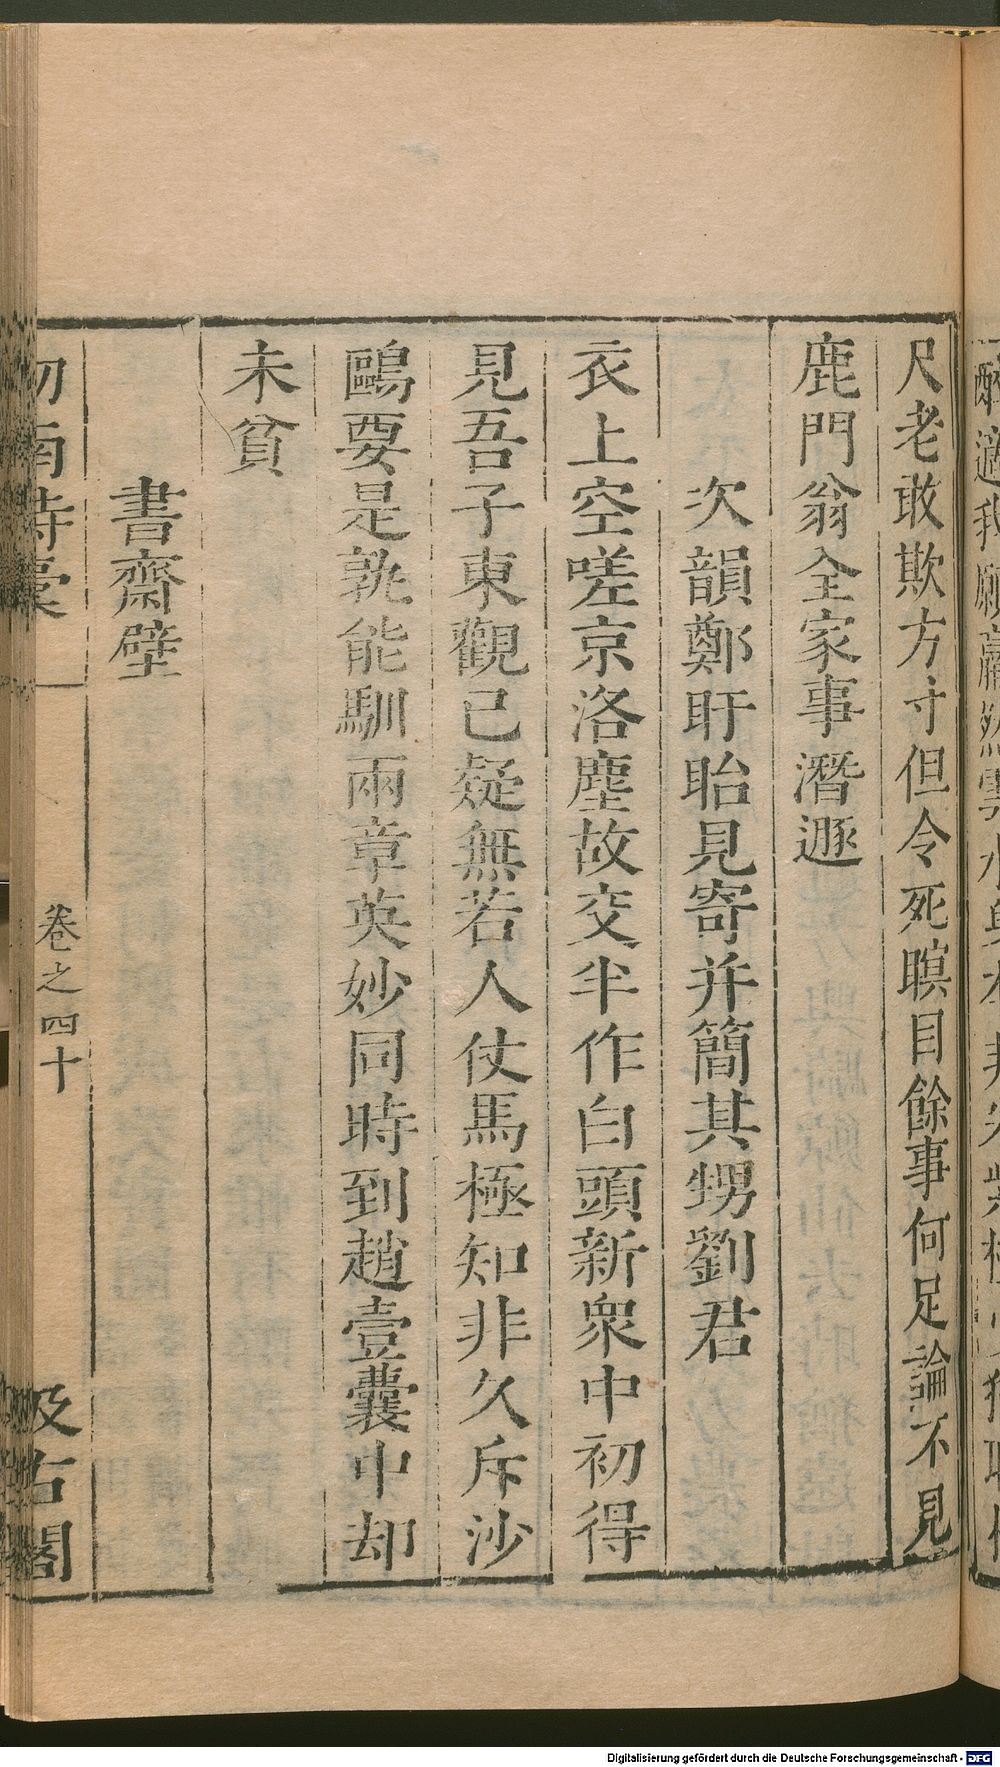 尺老敢欺方寸但令死瞑目餘事何足論不見
鹿門翁全家事潛遯
次韻鄭盱眙見寄并簡其甥劉君
衣上空嗟京洛塵故交半作白頭新衆中初得
見吾子東觀已疑無若人仗馬極知非久斥沙
鷗要是孰能馴兩章英妙同時到趙壹囊中却
未貧
書齋壁
卷之四十
汲古閣
Digitalisierung gefördert durch die Deutsche Forschungsgemeinschaft - DFG